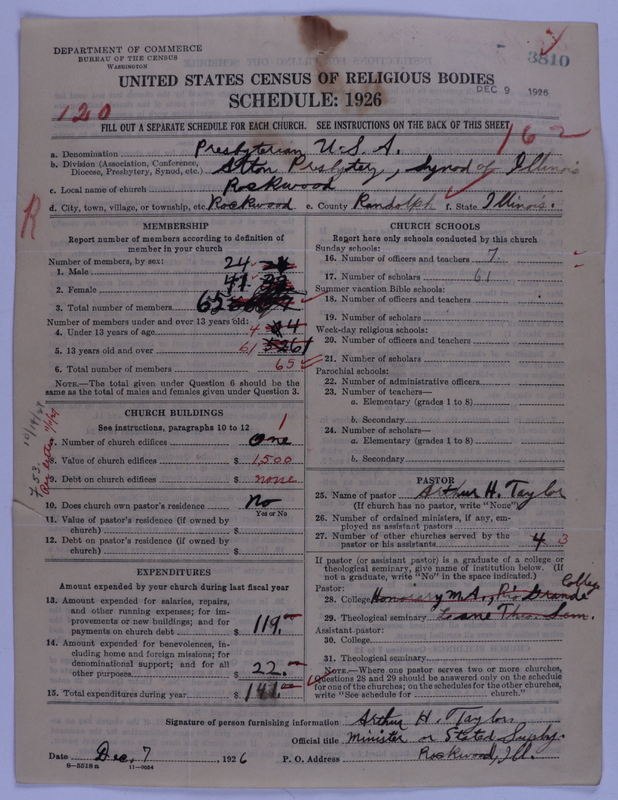 DEPARTMENT OF COMMERCE
BUREAU OF THE CENSUS
WASHINGTON
3810
UNITED STATES CENSUS OF RELIGIOUS BODIES
DEC 9 1926
SCHEDULE: 1926
120
FILL OUT A SEPARATE SCHEDULE FOR EACH CHURCH. SEE INSTRUCTIONS ON THE BACK OF THIS SHEET
162
a. Denomination Presbyterian U.S.A.
b. Division (Association, Conference, Diocese, Presbytery, Synod, etc.) Alton Presbytery, Synod of Illinois
c. Local name of church Rockwood
d. City, town, village, or township, etc. Rockwood e. County Randolph f. State Illinois.
R
MEMBERSHIP
Report number of members according to definition of
member in your church
Number of members, by sex:
1. Male 24
2. Female 41
3. Total number of members 65
Number of members under and over 13 years old:
4. Under 13 years of age 4 4
5. 13 years old and over 61 61
6. Total number of members 65
NOTE.—The total given under Question 6 should be
the same as the total of males and females given under Question 3.
CHURCH BUILDINGS
See instructions, paragraphs 10 to 12
1
7. Number of church edifices one
8. Value of church edifices $ 1,500
9. Debt on church edifices $ none
10. Does church own pastor's residence No
Yes or No
11. Value of pastor's residence (if owned by
church) $
12. Debt on pastor's residence (if owned by
church) $
EXPENDITURES
Amount expended by your church during last fiscal year
13. Amount expended for salaries, repairs,
and other running expenses; for im-
provements or new buildings; and for
payments on church debt $ 119.
14. Amount expended for benevolences, in-
cluding home and foreign missions; for
denominational support; and for all
other purposes $ 22.
15. Total expenditures during year $ 141.
CHURCH SCHOOLS
Report here only schools conducted by this church
Sunday schools:
16. Number of officers and teachers 7
17. Number of scholars 61
Summer vacation Bible schools:
18. Number of officers and teachers
19. Number of scholars
Week-day religious schools:
20. Number of officers and teachers
21. Number of scholars
Parochial schools:
22. Number of administrative officers
23. Number of teachers—
a. Elementary (grades 1 to 8)
b. Secondary
24. Number of scholars—
a. Elementary (grades 1 to 8)
b. Secondary
PASTOR
25. Name of pastor Arthur H. Taylor
(If church has no pastor, write "None")
26. Number of ordained ministers, if any, em-
ployed as assistant pastors
27. Number of other churches served by the
pastor or his assistants 4 3
If pastor (or assistant pastor) is a graduate of a college or
theological seminary, give name of institution below. (If
not a graduate, write "No" in the space indicated.)
Pastor:
28. College Honorary M.A., Rio Grande College
29. Theological seminary Lane Theo. Sem.
Assistant pastor:
30. College
31. Theological seminary
NOTE.—Where one pastor serves two or more churches,
Questions 28 and 29 should be answered only on the schedule
for one of the churches; on the schedules for the other churches,
write "See schedule for church."
Signature of person furnishing information Arthur H. Taylor
Official title Minister or Stated Supply.
Date Dec. 7, 1926 P. O. Address Rockwood, Ill.
8-5518a 11-9054